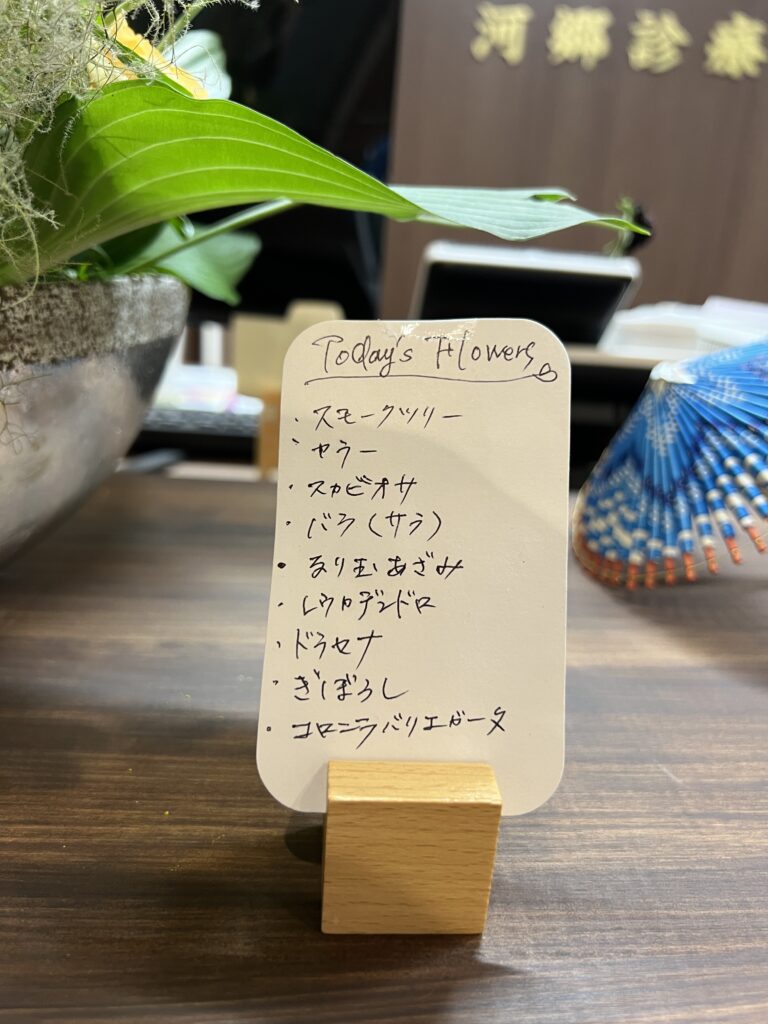 河郷診療
Today's Flowers
・スモークツリー
・カラー
・スカビオサ
・バラ(サラ)
・るり玉あざみ
・レウカデンドロ
・ドラセナ
・ぎぼうし
・コロニラバリエガータ